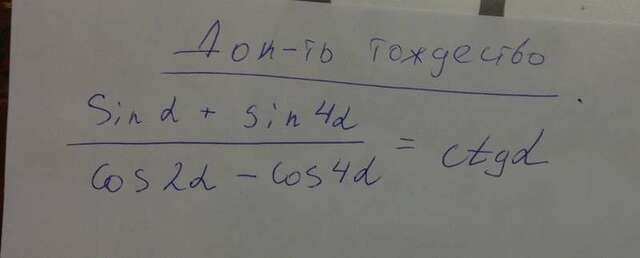 Док-ть тождество.
sin α + sin 4α
cos 2α - cos 4α
= ctg α